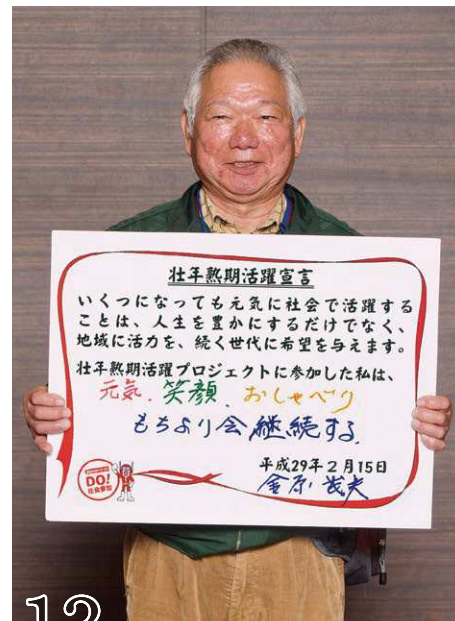 壮年熟期活躍宣言
いくつになっても元気に社会で活躍する
ことは、人生を豊かにするだけでなく、
地域に活力を、続く世代に希望を与えます。
壮年熟期活躍プロジェクトに参加した私は、
元気、笑顔、おしゃべり
もちより会継続する
平成29年2月15日
DO!
社会参加
12